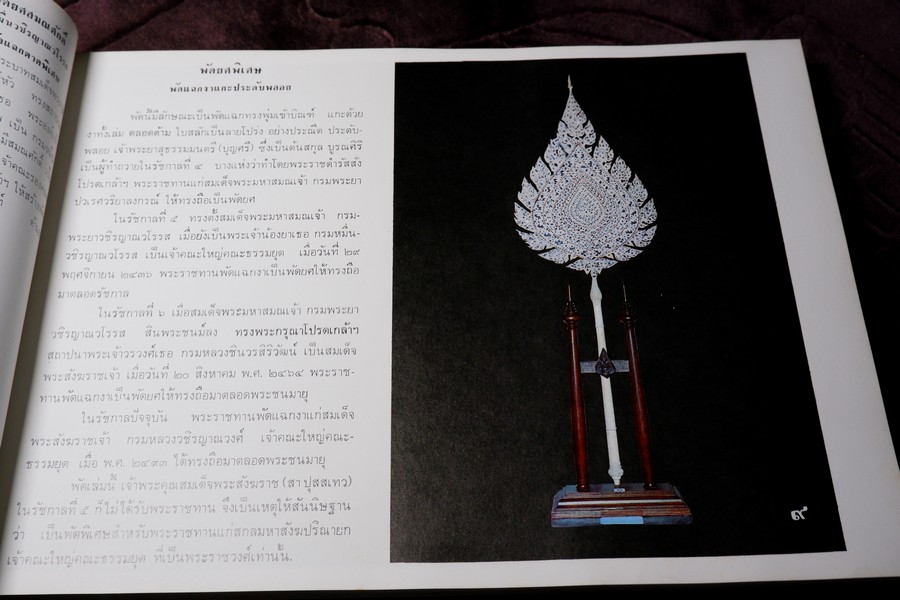 พัดยศพิเศษ
พัดแฉกงาและประดับพลอย
พัดนี้มีลักษณะเป็นพัดแฉกทรงพุ่มเข้าบิณฑ์ แกะด้วย
งาทั้งเล่ม ตลอดด้าม ใบสลักเป็นลายโปร่ง อย่างประณีต ประดับ-
พลอย เจ้าพระยาสุธรรมมนตรี (บุญศรี) ซึ่งเป็นต้นสกุล บูรณศิริ
เป็นผู้ทำถวายในรัชกาลที่ ๔ บางแห่งว่าทำโดยพระราชดำรัสสั่ง
โปรดเกล้าฯ พระราชทานแก่สมเด็จพระมหาสมณเจ้า กรมพระยา
ปวเรศวริยาลงกรณ์ ให้ทรงถือเป็นพัดยศ
ในรัชกาลที่ ๕ ทรงตั้งสมเด็จพระมหาสมณเจ้า กรม-
พระยาวชิรญาณวโรรส เมื่อยังเป็นพระเจ้าน้องยาเธอ กรมหมื่น-
วชิรญาณวโรรส เป็นเจ้าคณะใหญ่คณะธรรมยุต เมื่อวันที่ ๒๙
พฤศจิกายน ๒๔๓๖ พระราชทานพัดแฉกงาเป็นพัดยศให้ทรงถือ
มาตลอดรัชกาล
ในรัชกาลที่ ๖ เมื่อสมเด็จพระมหาสมณเจ้า กรมพระยา
วชิรญาณวโรรส สิ้นพระชนม์ลง ทรงพระกรุณาโปรดเกล้าฯ
สถาปนาพระเจ้าวรวงศ์เธอ กรมหลวงชินวรสิริวัฒน์ เป็นสมเด็จ
พระสังฆราชเจ้า เมื่อวันที่ ๒๐ สิงหาคม พ.ศ. ๒๔๖๔ พระราช-
ทานพัดแฉกงาเป็นพัดยศให้ทรงถือมาตลอดพระชนมายุ
ในรัชกาลปัจจุบัน พระราชทานพัดแฉกงาแก่สมเด็จ
พระสังฆราชเจ้า กรมหลวงวชิรญาณวงศ์ เจ้าคณะใหญ่คณะ-
ธรรมยุต เมื่อ พ.ศ. ๒๔๙๓ ได้ทรงถือมาตลอดพระชนมายุ
พัดเล่มนี้ เจ้าพระคุณสมเด็จพระสังฆราช (สา ปุสสเทว)
ในรัชกาลที่ ๕ ก็ไม่ได้รับพระราชทาน จึงเป็นเหตุให้สันนิษฐาน
ว่า เป็นพัดพิเศษสำหรับพระราชทานแก่สกลมหาสังฆปริณายก
เจ้าคณะใหญ่คณะธรรมยุต ที่เป็นพระราชวงศ์เท่านั้น.
๙